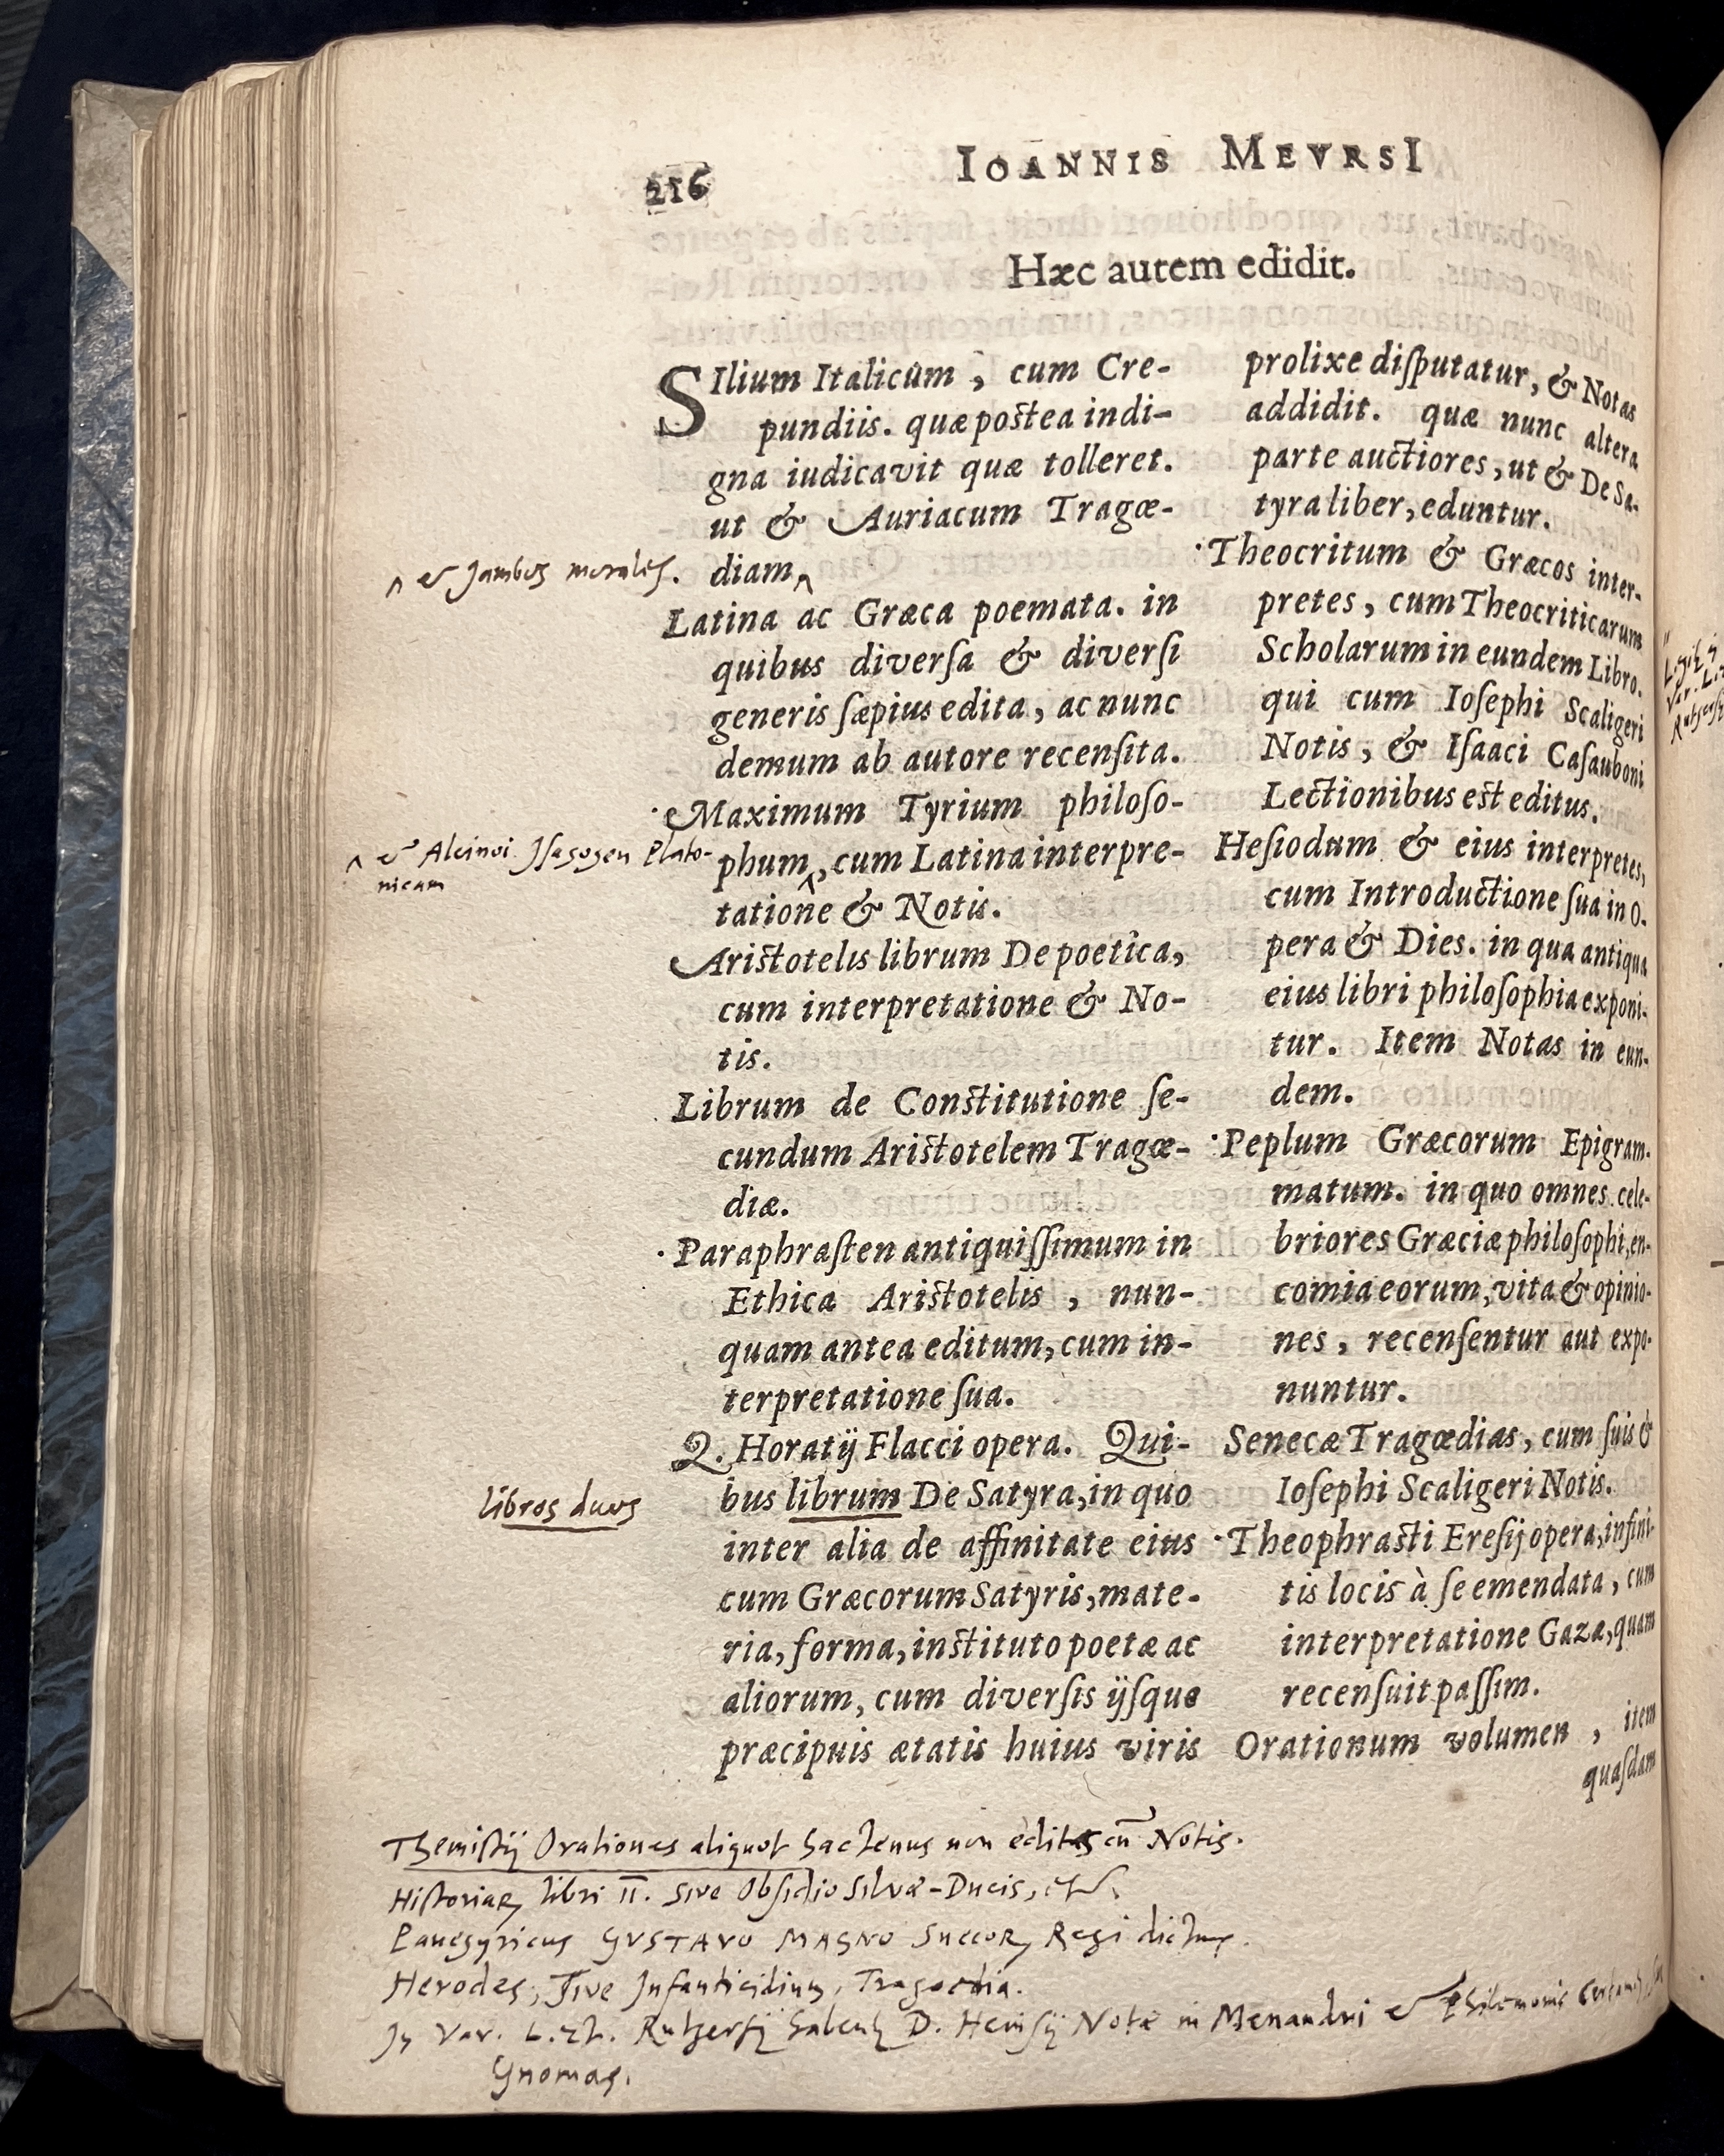 216
IOANNIS MEVRSI
Hæc autem edidit.
SIlium Italicum, cum Cre-
pundiis. quæ postea indi-
gna iudicavit quæ tolleret.
ut & Auriacum Tragœ-
‸ & Jambos morales.
diam‸
Latina ac Græca poemata. in
quibus diversa & diversi
generis sæpius edita, ac nunc
demum ab autore recensita.
·Maximum Tyrium philoso-
‸ & Alcinoi Isagogen Plato-
nicam
phum‸, cum Latina interpre-
tatione & Notis.
Aristotelis librum De poetica,
cum interpretatione & No-
tis.
Librum de Constitutione se-
cundum Aristotelem Tragœ-
diæ.
·Paraphrasten antiquissimum in
Ethica Aristotelis, nun-
quam antea editum, cum in-
terpretatione sua.
Q. Horatij Flacci opera. Qui-
libros duos
bus librum De Satyra, in quo
inter alia de affinitate eius
cum Græcorum Satyris, mate-
ria, forma, instituto poetæ ac
aliorum, cum diversis ijsque
præcipuis ætatis huius viris
prolixe disputatur, & Notas
addidit. quæ nunc altera
parte auctiores, ut & De Sa-
tyra liber, eduntur.
·Theocritum & Græcos inter-
pretes, cum Theocriticarum
Scholarum in eundem Libro.
qui cum Iosephi Scaligeri
Notis, & Isaaci Casauboni
Lectionibus est editus.
Hesiodum & eius interpretes,
cum Introductione sua in O-
pera & Dies. in qua antiqua
eius libri philosophia exponi-
tur. Item Notas in eun-
dem.
·Peplum Græcorum Epigram-
matum. in quo omnes cele-
briores Græciæ philosophi, en-
comia eorum, vita & opinio-
nes, recensentur aut expo-
nuntur.
Senecæ Tragœdias, cum suis &
Iosephi Scaligeri Notis.
·Theophrasti Eresij opera, infini-
tis locis à se emendata, cum
interpretatione Gazæ, quam
recensuit passim.
Orationum volumen, item
quasdam
Themistij Orationes aliquot hactenus non editas cū Notis.
Historiaꝝ libri II. sive Obsidio Silvæ-Ducis, etc.
Panegyricus GVSTAVO MAGNO Suecoꝝ Regi dictus.
Herodes, sive Infanticidium, Tragoedia.
In Var. Lect. Rutgersij D. Heinsij Notæ in Menandri & Philemonis
Gnomas.